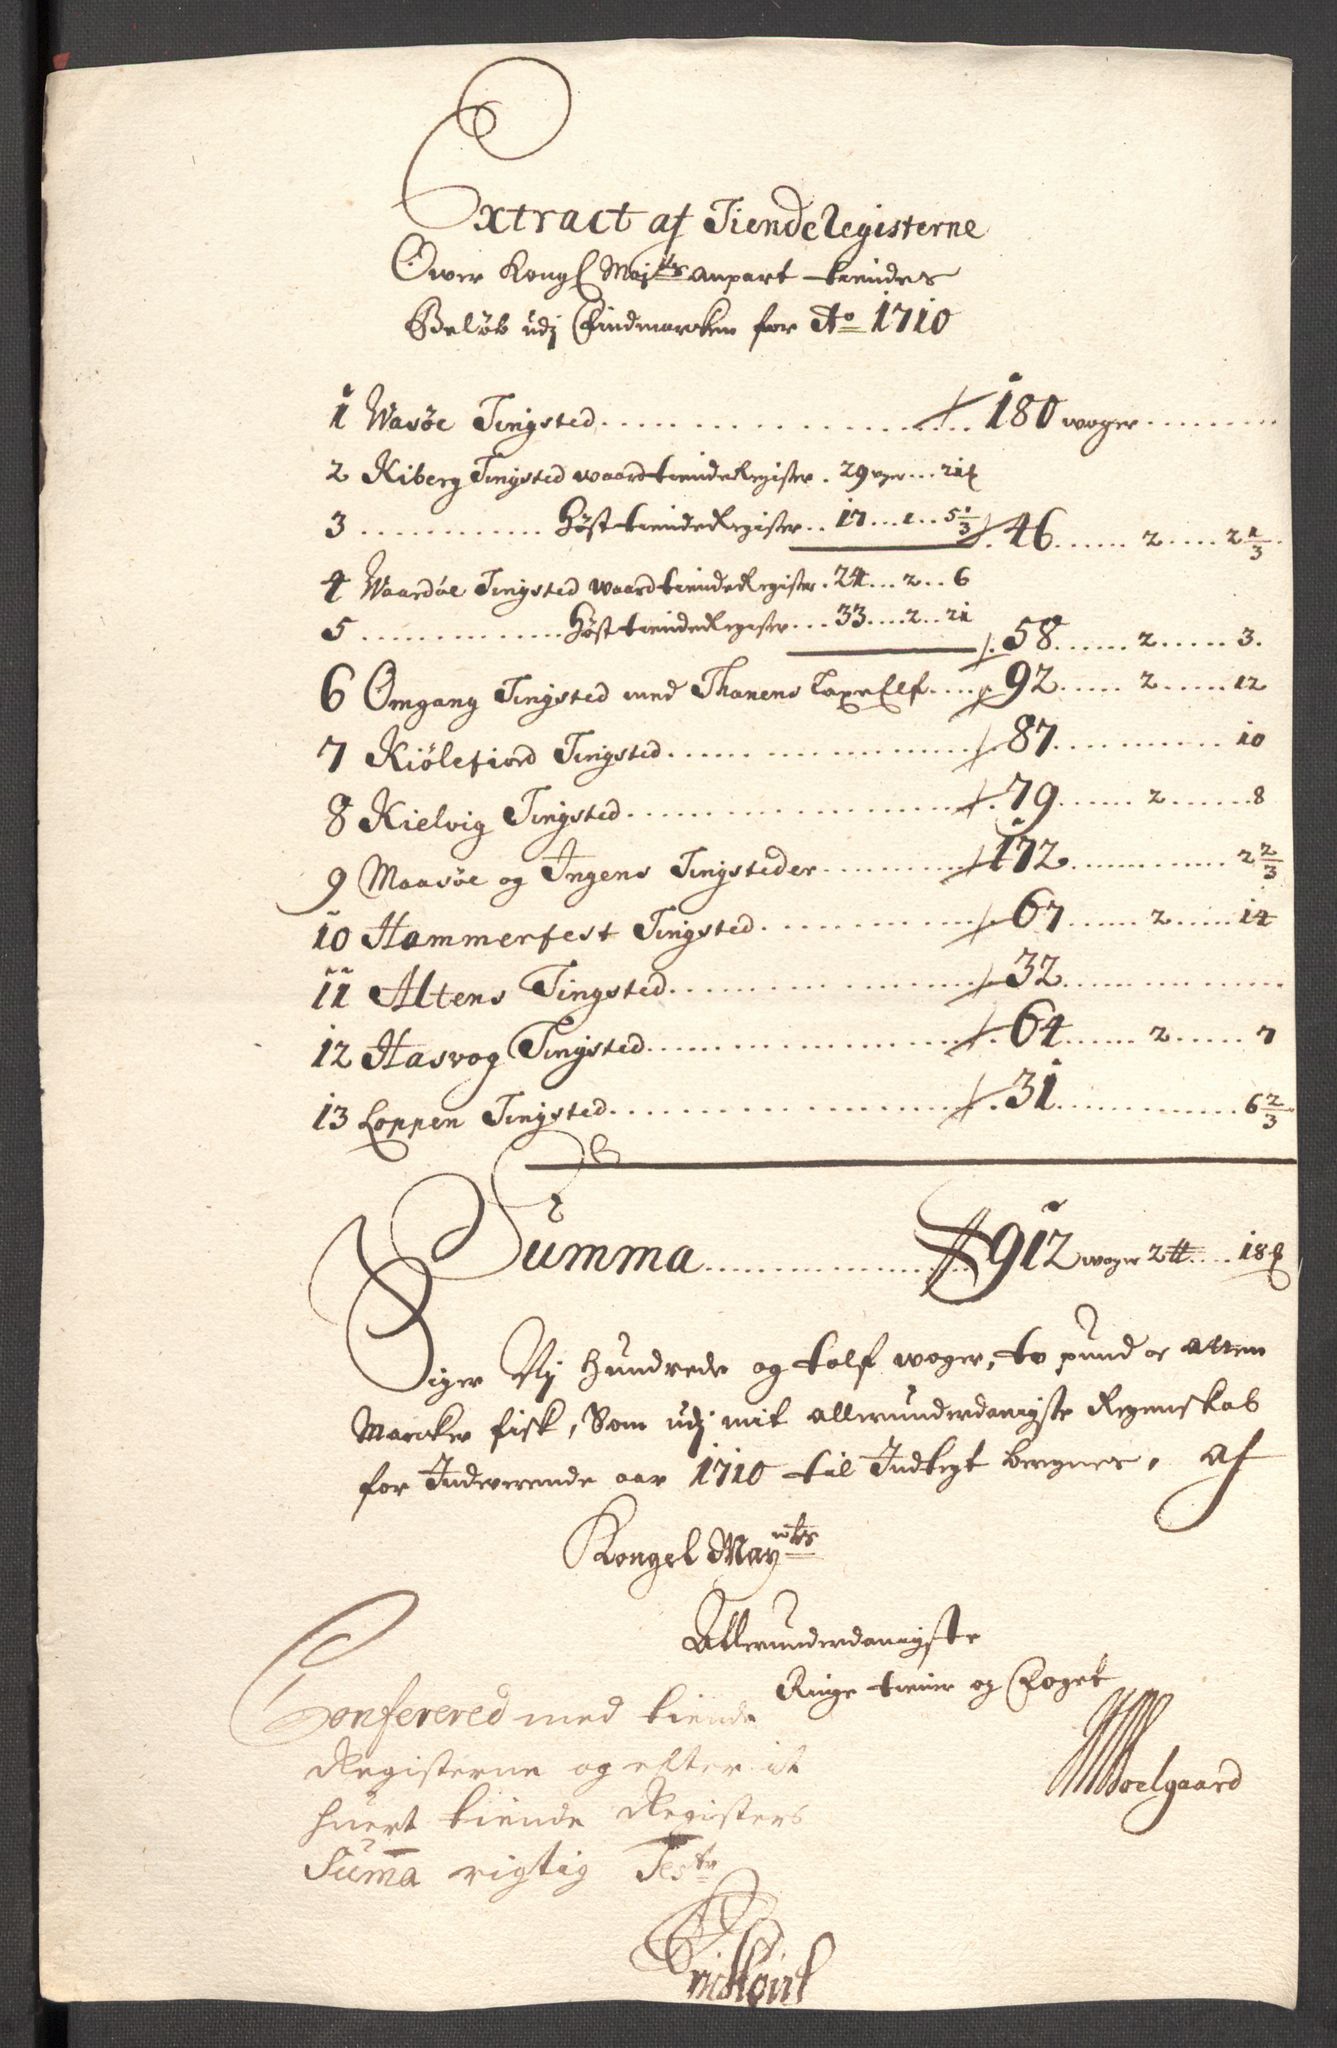 Extract af Tiende Registerne
Över Kongl Maj: anpart tiendes
Beløb udj Findmarcken for Ao 1710
1 Wasöe Tingsted 180 woger
2 Kiberg Tingsted waard tiende Register 29 wger 21
3 Höst tiende Register 17 1 5 1/3 46 2 2 1/3
4 Waardöe Tingsted waard tiende Register 24 2 6
5 Höst tiende Register 33 2 21 58 2 3
6 Omgang Tingsted med Thanens Laxe Elf 92 2 12
7 Kiölefiord Tingsted 87 10
8 Kielvig Tingsted 79 2 8
9 Maasöe og Ingens Tingsteder 172 2 2/3
10 Hammerfest Tingsted 67 2 14
11 Altens Tingsted 32
12 Hasvog Tingsted 64 2 7
13 Loppen Tingsted 31 6 2/3
Summa 912 woger 2 ₶ 18
Siger Nj Hundrede og tolf woger, to pund oc atten
Marcker fisk, Som udj mit allerunderdanigste Regenskab
for Indeverende aar 1710 til Indtegt beregnes. Af
Kongel May:tts
Allerunderdanigste
Ringe tiener og Foget
Soelgaard
Conferered med tiende
Registerne og efter it
huert tiende Registers
Summa rigtig Test